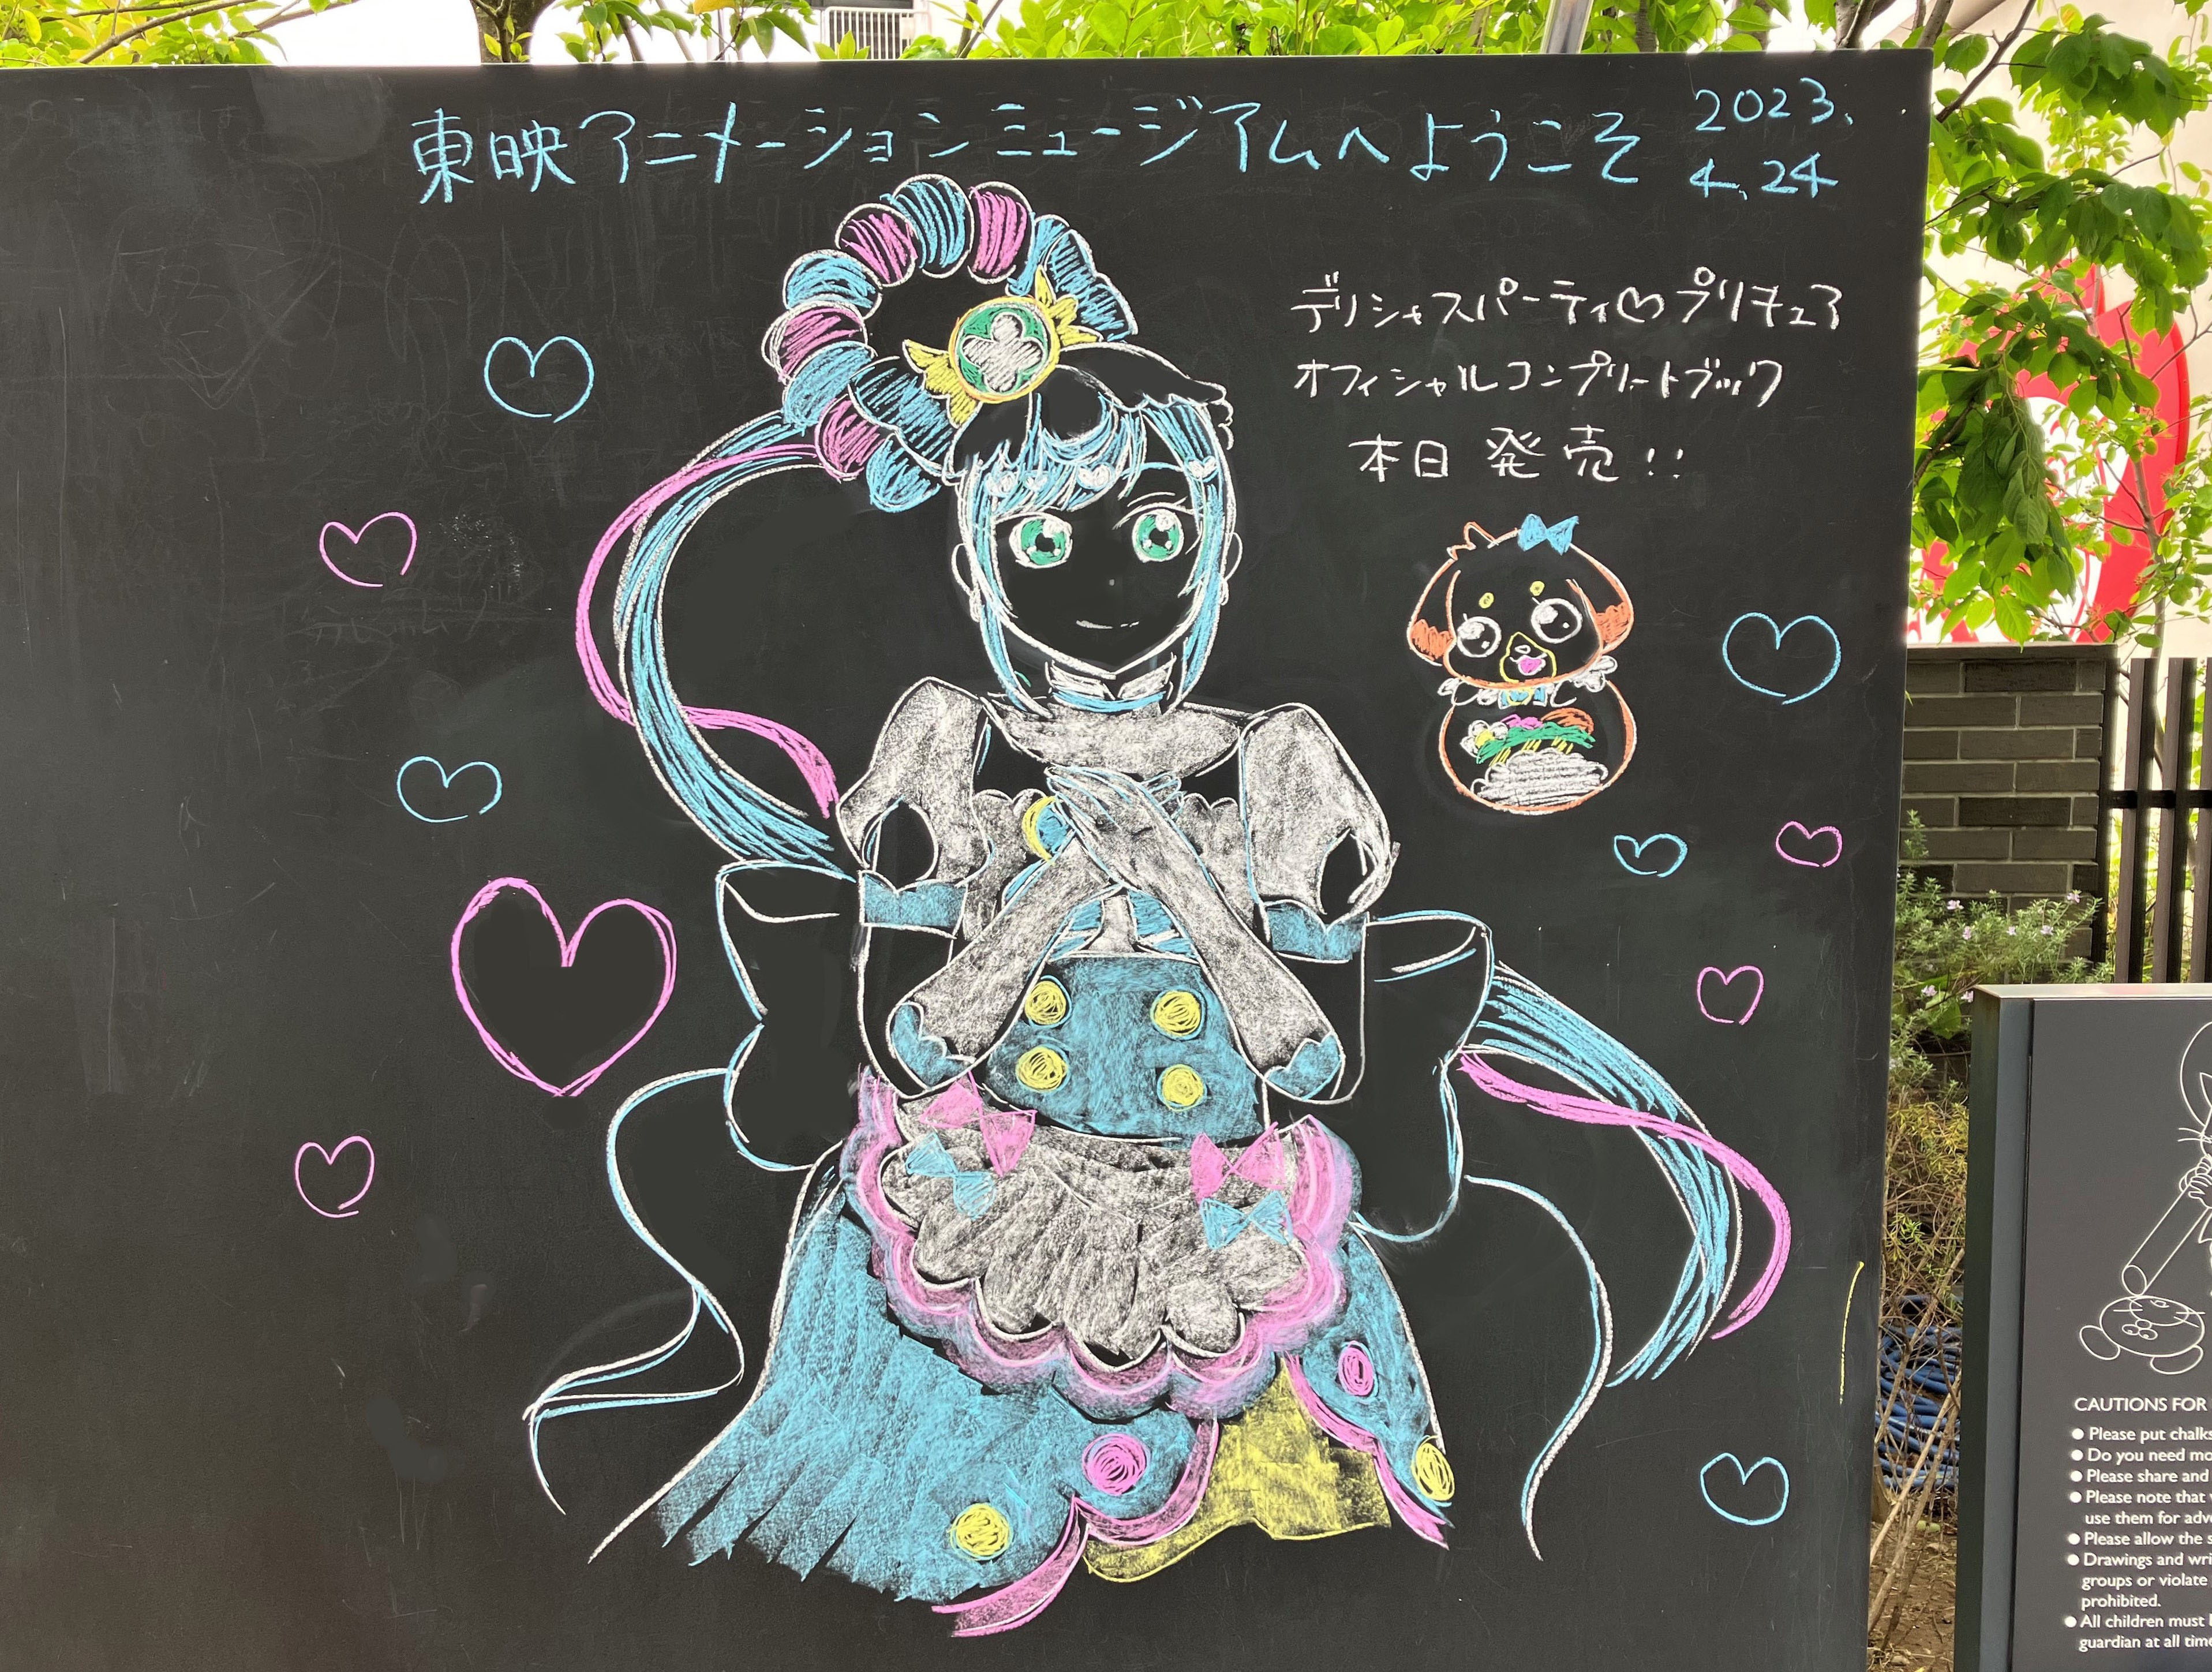 東映アニメーションミュージアムへようこそ
2023.
4.24
デリシャスパーティ♡プリキュア
オフィシャルコンプリートブック
本日発売!!
CAUTIONS FOR
● Please put chalks
● Do you need mo
● Please share and
● Please note that
use them for adv
● Please allow the s
● Drawings and wri
groups or violate
prohibited.
● All children must
guardian at all time